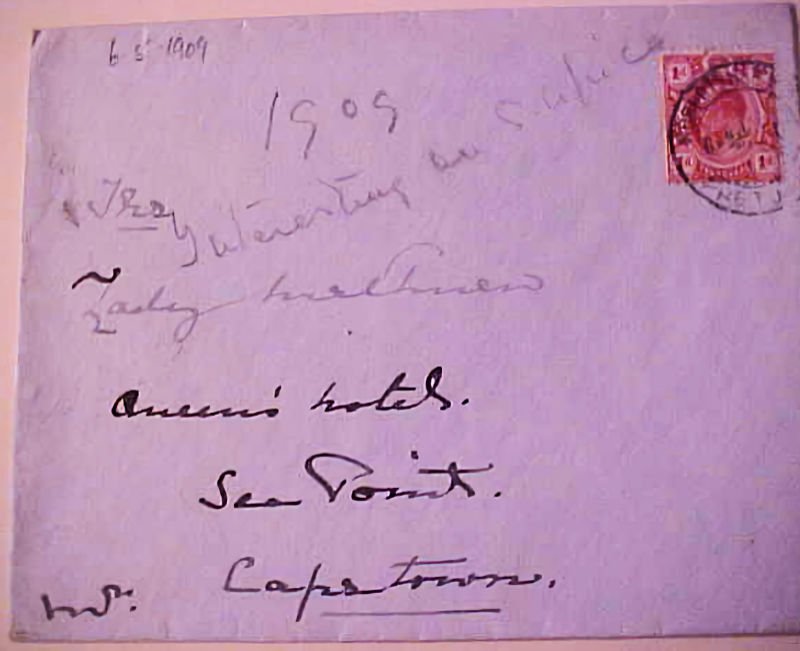 6 5 1909
1909
Interesting on S. Africa
The
Lady Methuen
Queen's Hotel.
Sea Point.
Cape Town.
1d 1d